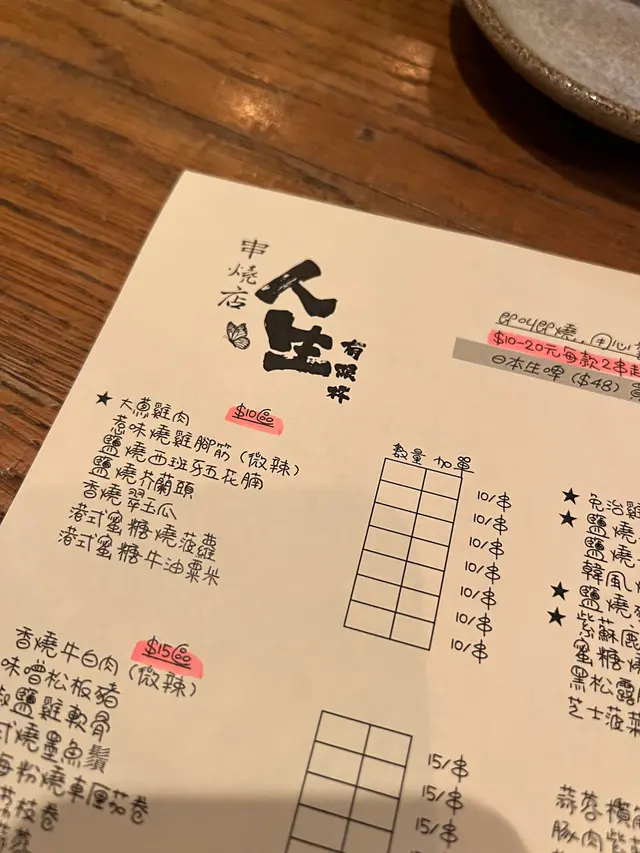 串燒店
人生
有限杯
即叫即燒，用心
$10-20元每款2串起
日本生啤 ($48)
$10區
數量 加單
★ 大蔥雞肉 10/串
惹味燒雞腳筋 (微辣) 10/串
鹽燒西班牙五花腩 10/串
鹽燒芥蘭頭 10/串
香燒翠玉瓜 10/串
港式蜜糖燒菠蘿 10/串
港式蜜糖牛油粟米 10/串
$15區
香燒牛白肉 (微辣) 15/串
味噌松板豬 15/串
鹽雞軟骨 15/串
式燒墨魚鬚
海粉燒車厘茄卷
荔枝卷
★ 免治雞
★ 鹽燒
鹽燒
韓風
★ 鹽燒
★ 紫蘇
蜜糖燒
黑松露
芝士菠
蒜蓉
豚肉